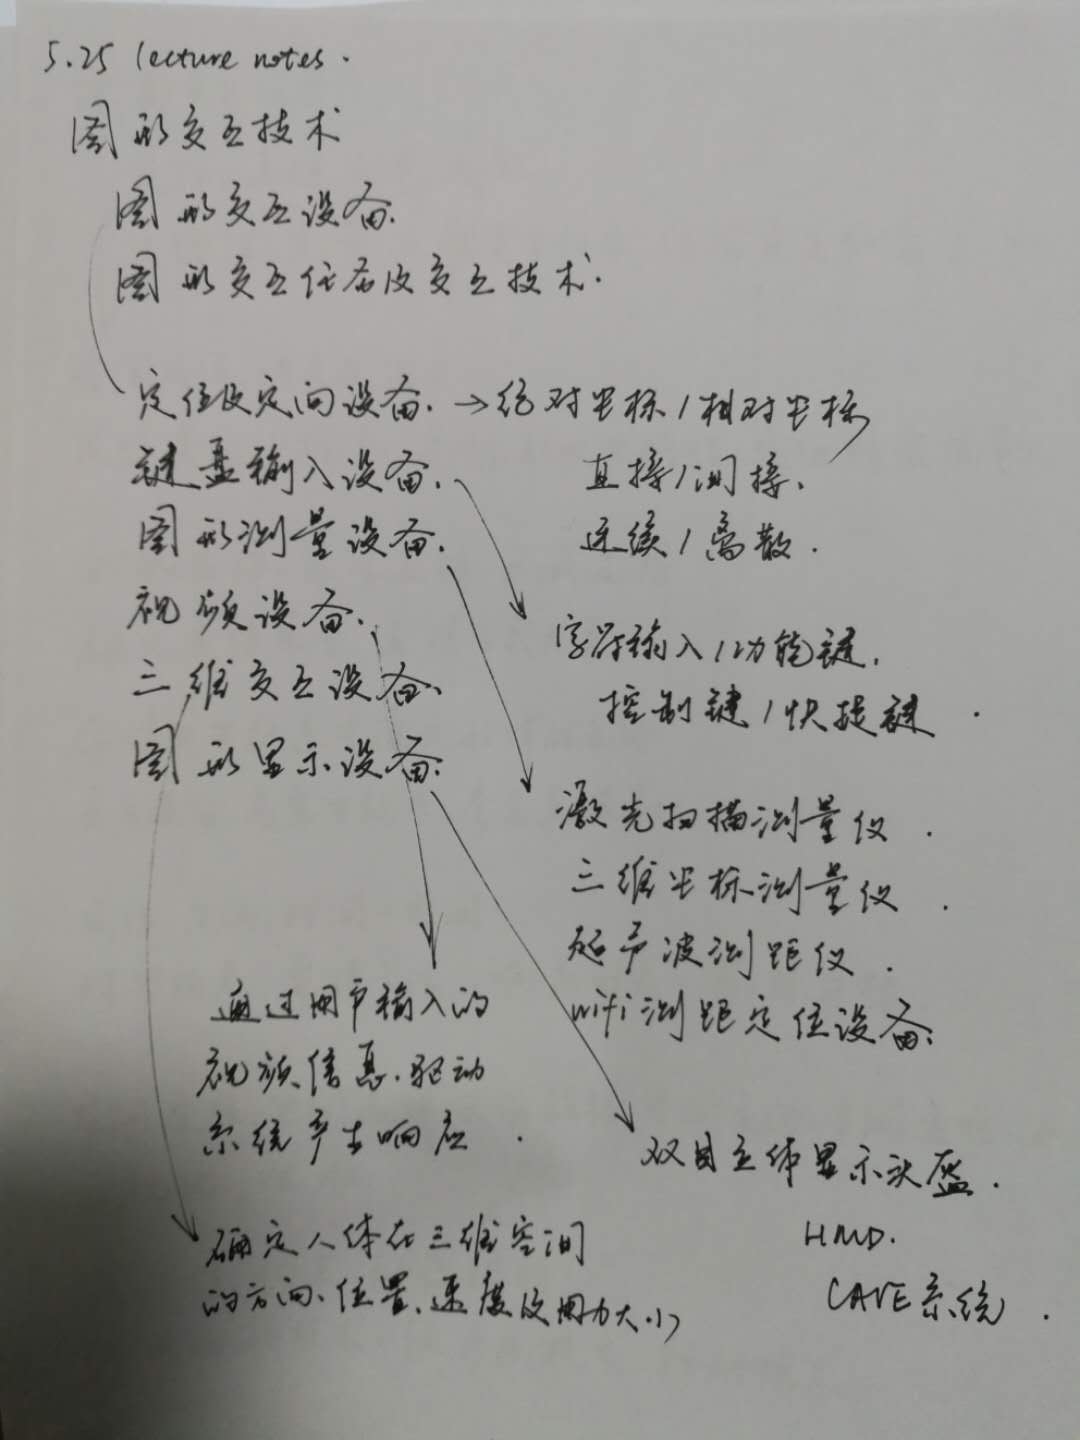 5.25 lecture notes.
图形交互技术
图形交互设备.
图形交互任务及交互技术.
定位及定向设备. → 绝对坐标/相对坐标
直接/间接.
连续/离散.
键盘输入设备.
图形测量设备.
视频设备.
三维交互设备.
图形显示设备.
字符输入/功能键.
控制键/快捷键.
激光扫描测量仪.
三维坐标测量仪.
超声波测距仪.
wifi测距定位设备.
通过用户输入的
视频信息.驱动
系统产生响应.
双目立体显示头盔.
HMD.
CAVE系统.
确定人体在三维空间
的方向、位置、速度及用力大小